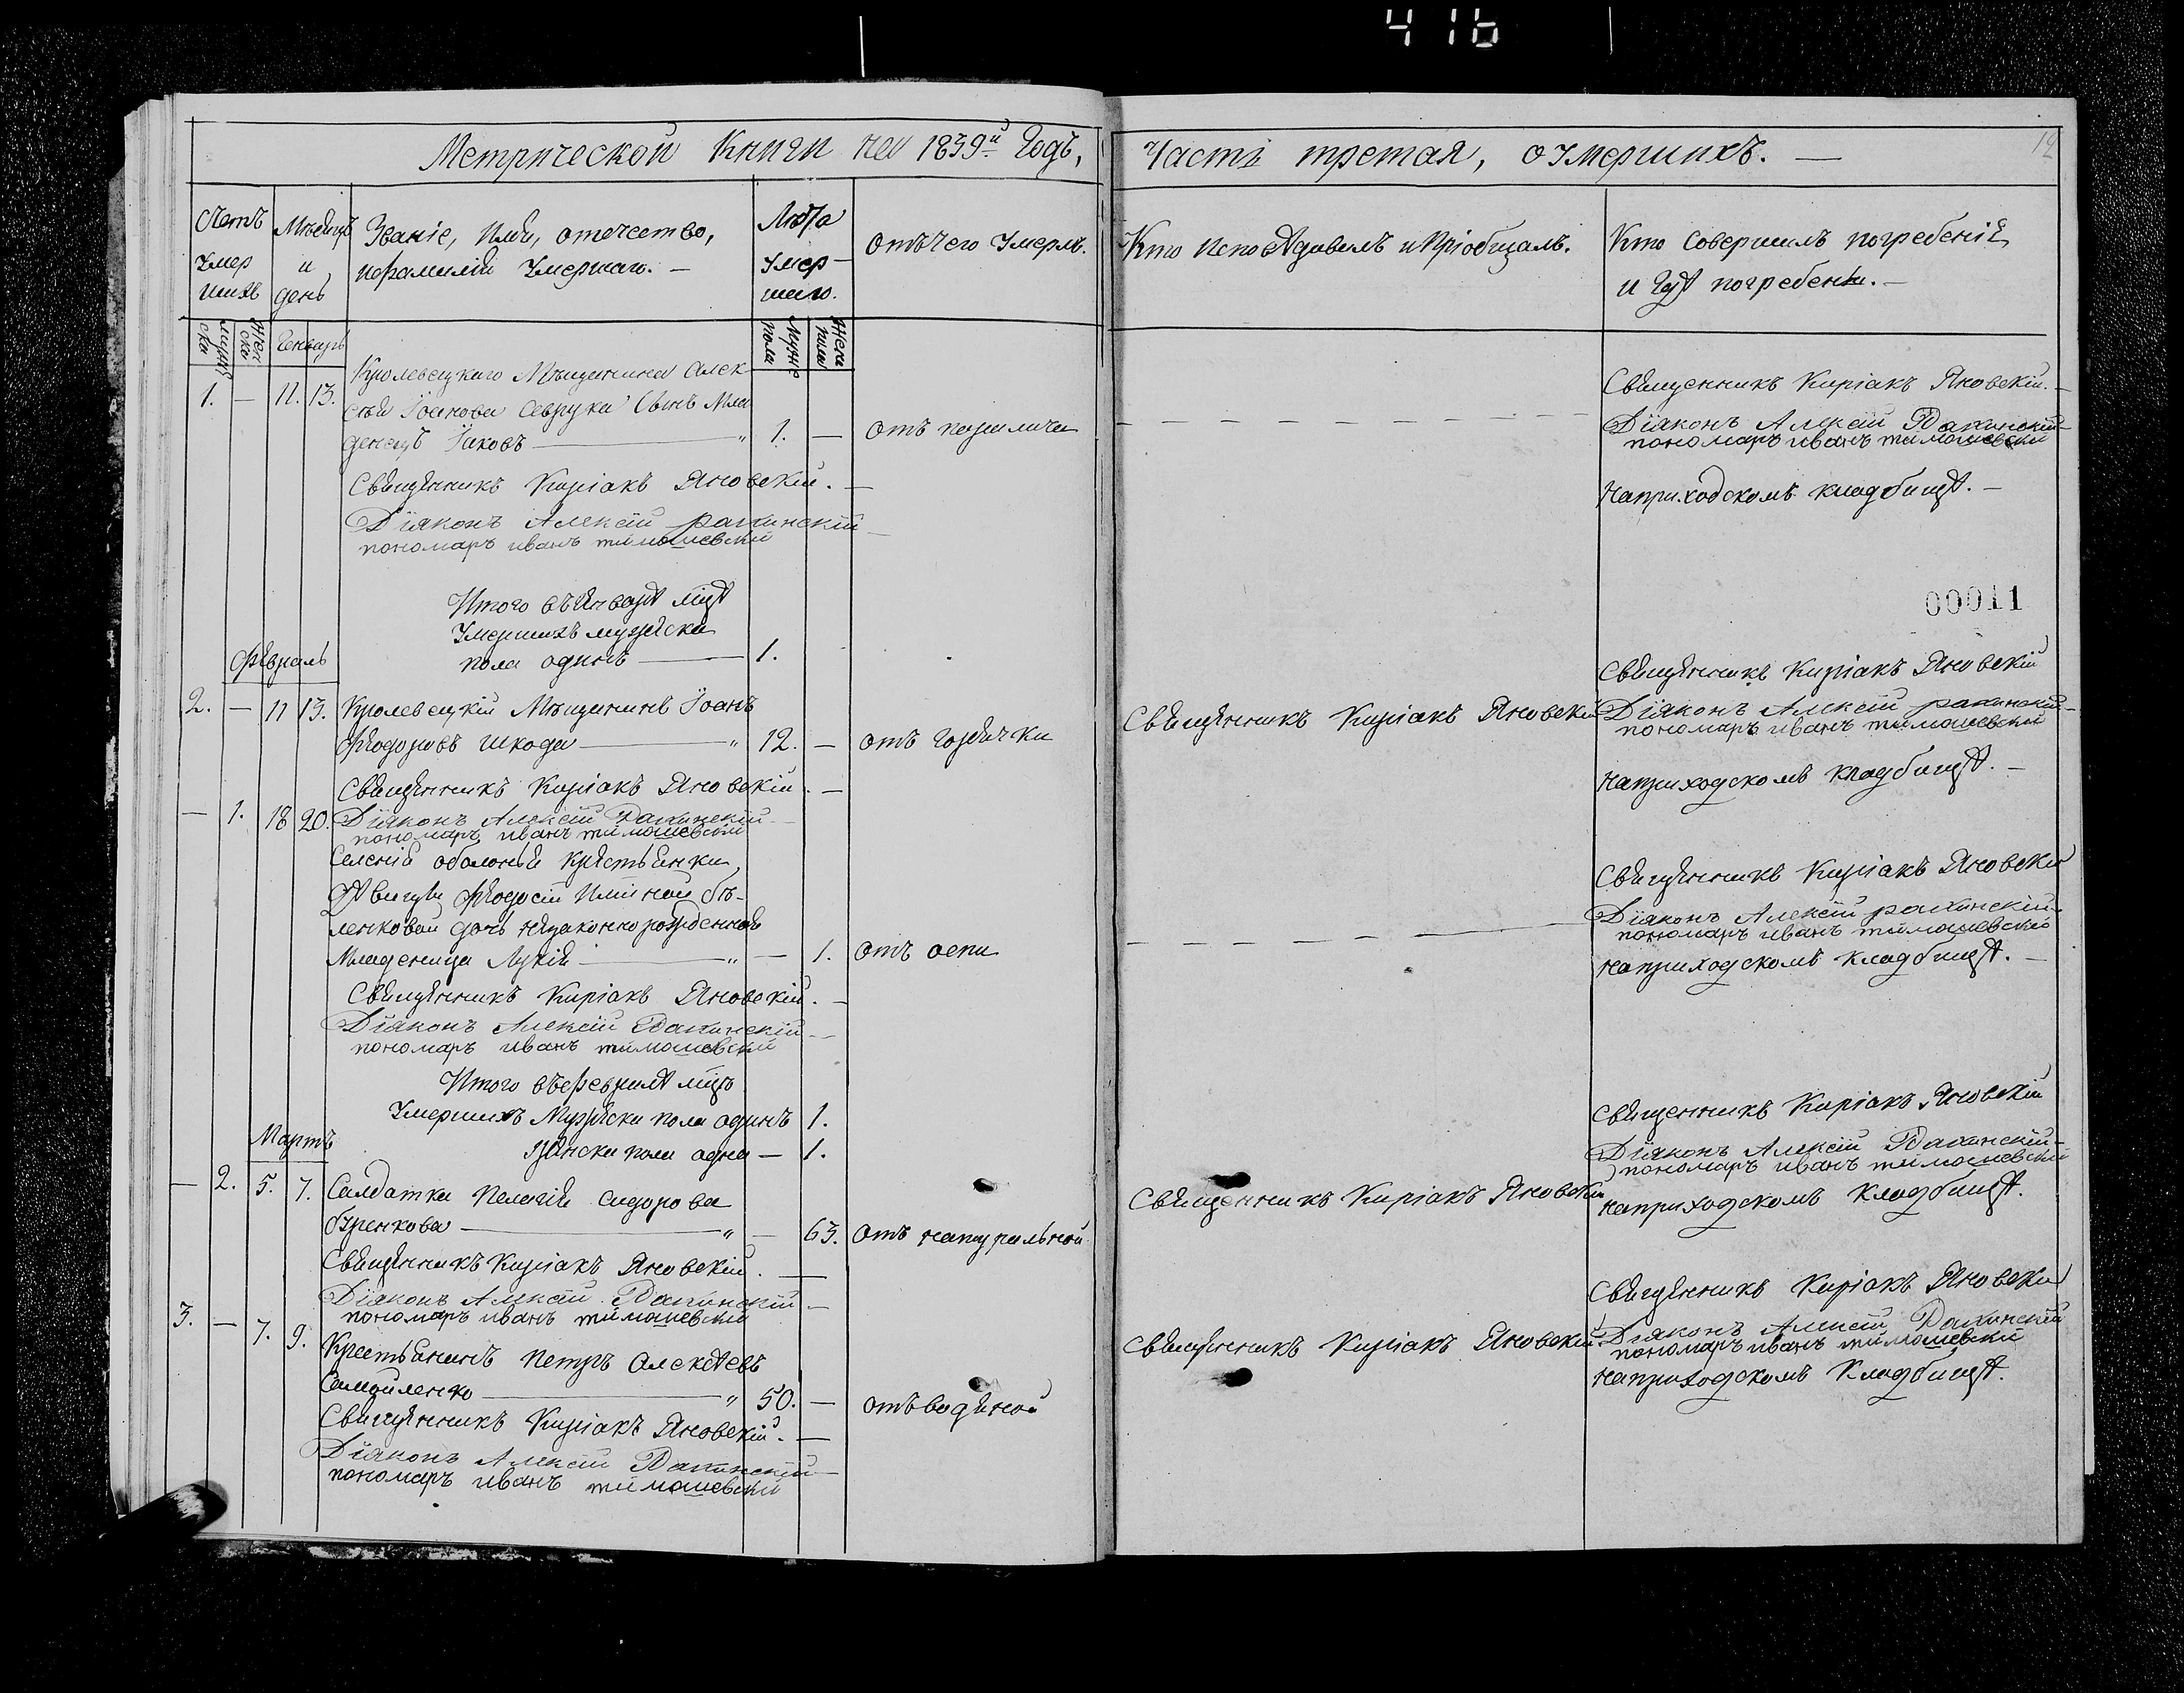 416
Метрической Книги на 1839й Годъ,
Часть третая, о умершихъ. —
12
Счетъ умершихъ
Мѣсяцъ и день
Званіе, имя, отечество,
и фамилія умершаго. —
Лѣта умершаго.
Отъ чего умеръ.
Кто исповѣдывалъ и пріобщалъ.
Кто совершилъ погребеніе
и гдѣ погребены. —
мужска
женска
Генварь
мужска пола
женска пола
Кролевецкаго Мѣщанина Алек-
1. — 11. 13. сѣя Іоанова Севрука сынъ Мла
денецъ Іаковъ — " 1. — отъ
Священникъ Киріакъ Яновскій. —
Діяконъ Алексій Рахинскій
пономаръ иванъ тимошевскій
Священникъ Киріакъ Яновскій. —
Діяконъ Алексій Рахинскій
пономаръ иванъ тимошевскій
на приходскомъ кладбищѣ. —
Итого въ Январѣ мцѣ
умершихъ мужеска
пола одинъ — 1.
00011
Февраль
2. — 11 13. Кролевецкій Мѣщанинъ Іоанъ
Феодоровъ Шкода — " 12. — отъ горячки
Священникъ Киріакъ Яновскій. —
Діяконъ Алексій Рахинскій
пономаръ иванъ тимошевскій
Священникъ Киріакъ Яновскій
Священникъ Киріакъ Яновскій
Діяконъ Алексій рахинскій
пономаръ иванъ тимошевскій
на приходскомъ кладбищѣ. —
— 1. 18 20.
Селенія оболонья крестьянки
Дѣвици Феодосіи Бѣ-
ленковой дочь незаконнорожденная
Младеница Лукія — " — 1. отъ оспи
Священникъ Киріакъ Яновскій. —
Діяконъ Алексій Рахинскій
пономаръ иванъ тимошевскій
Священникъ Киріакъ Яновскій
Діяконъ Алексій рахинскій
пономаръ иванъ тимошевскій
на приходскомъ кладбищѣ. —
Итого въ февралѣ мцѣ
умершихъ Мужеска пола одинъ 1.
женска пола одна — 1.
Мартъ
— 2. 5. 7. Салдатка Пелагія Сидорова
— " — 63. отъ натуральной
Священникъ Киріакъ Яновскій. —
Діяконъ Алексій Рахинскій
пономаръ иванъ тимошевскій
Священникъ Киріакъ Яновскій
Священникъ Киріакъ Яновскій
Діяконъ Алексій Рахинскій
пономаръ иванъ тимошевскій
на приходскомъ кладбищѣ.
3. — 7. 9. Крестьянинъ Петръ Алексѣевъ
Самойленко — " 50. — отъ водяной
Священникъ Киріакъ Яновскій. —
Діяконъ Алексій Рахинскій
пономаръ иванъ тимошевскій
Священникъ Киріакъ Яновскій
Священникъ Киріакъ Яновскій
Діяконъ Алексій Рахинскій
пономаръ иванъ тимошевскій
на приходскомъ кладбищѣ.